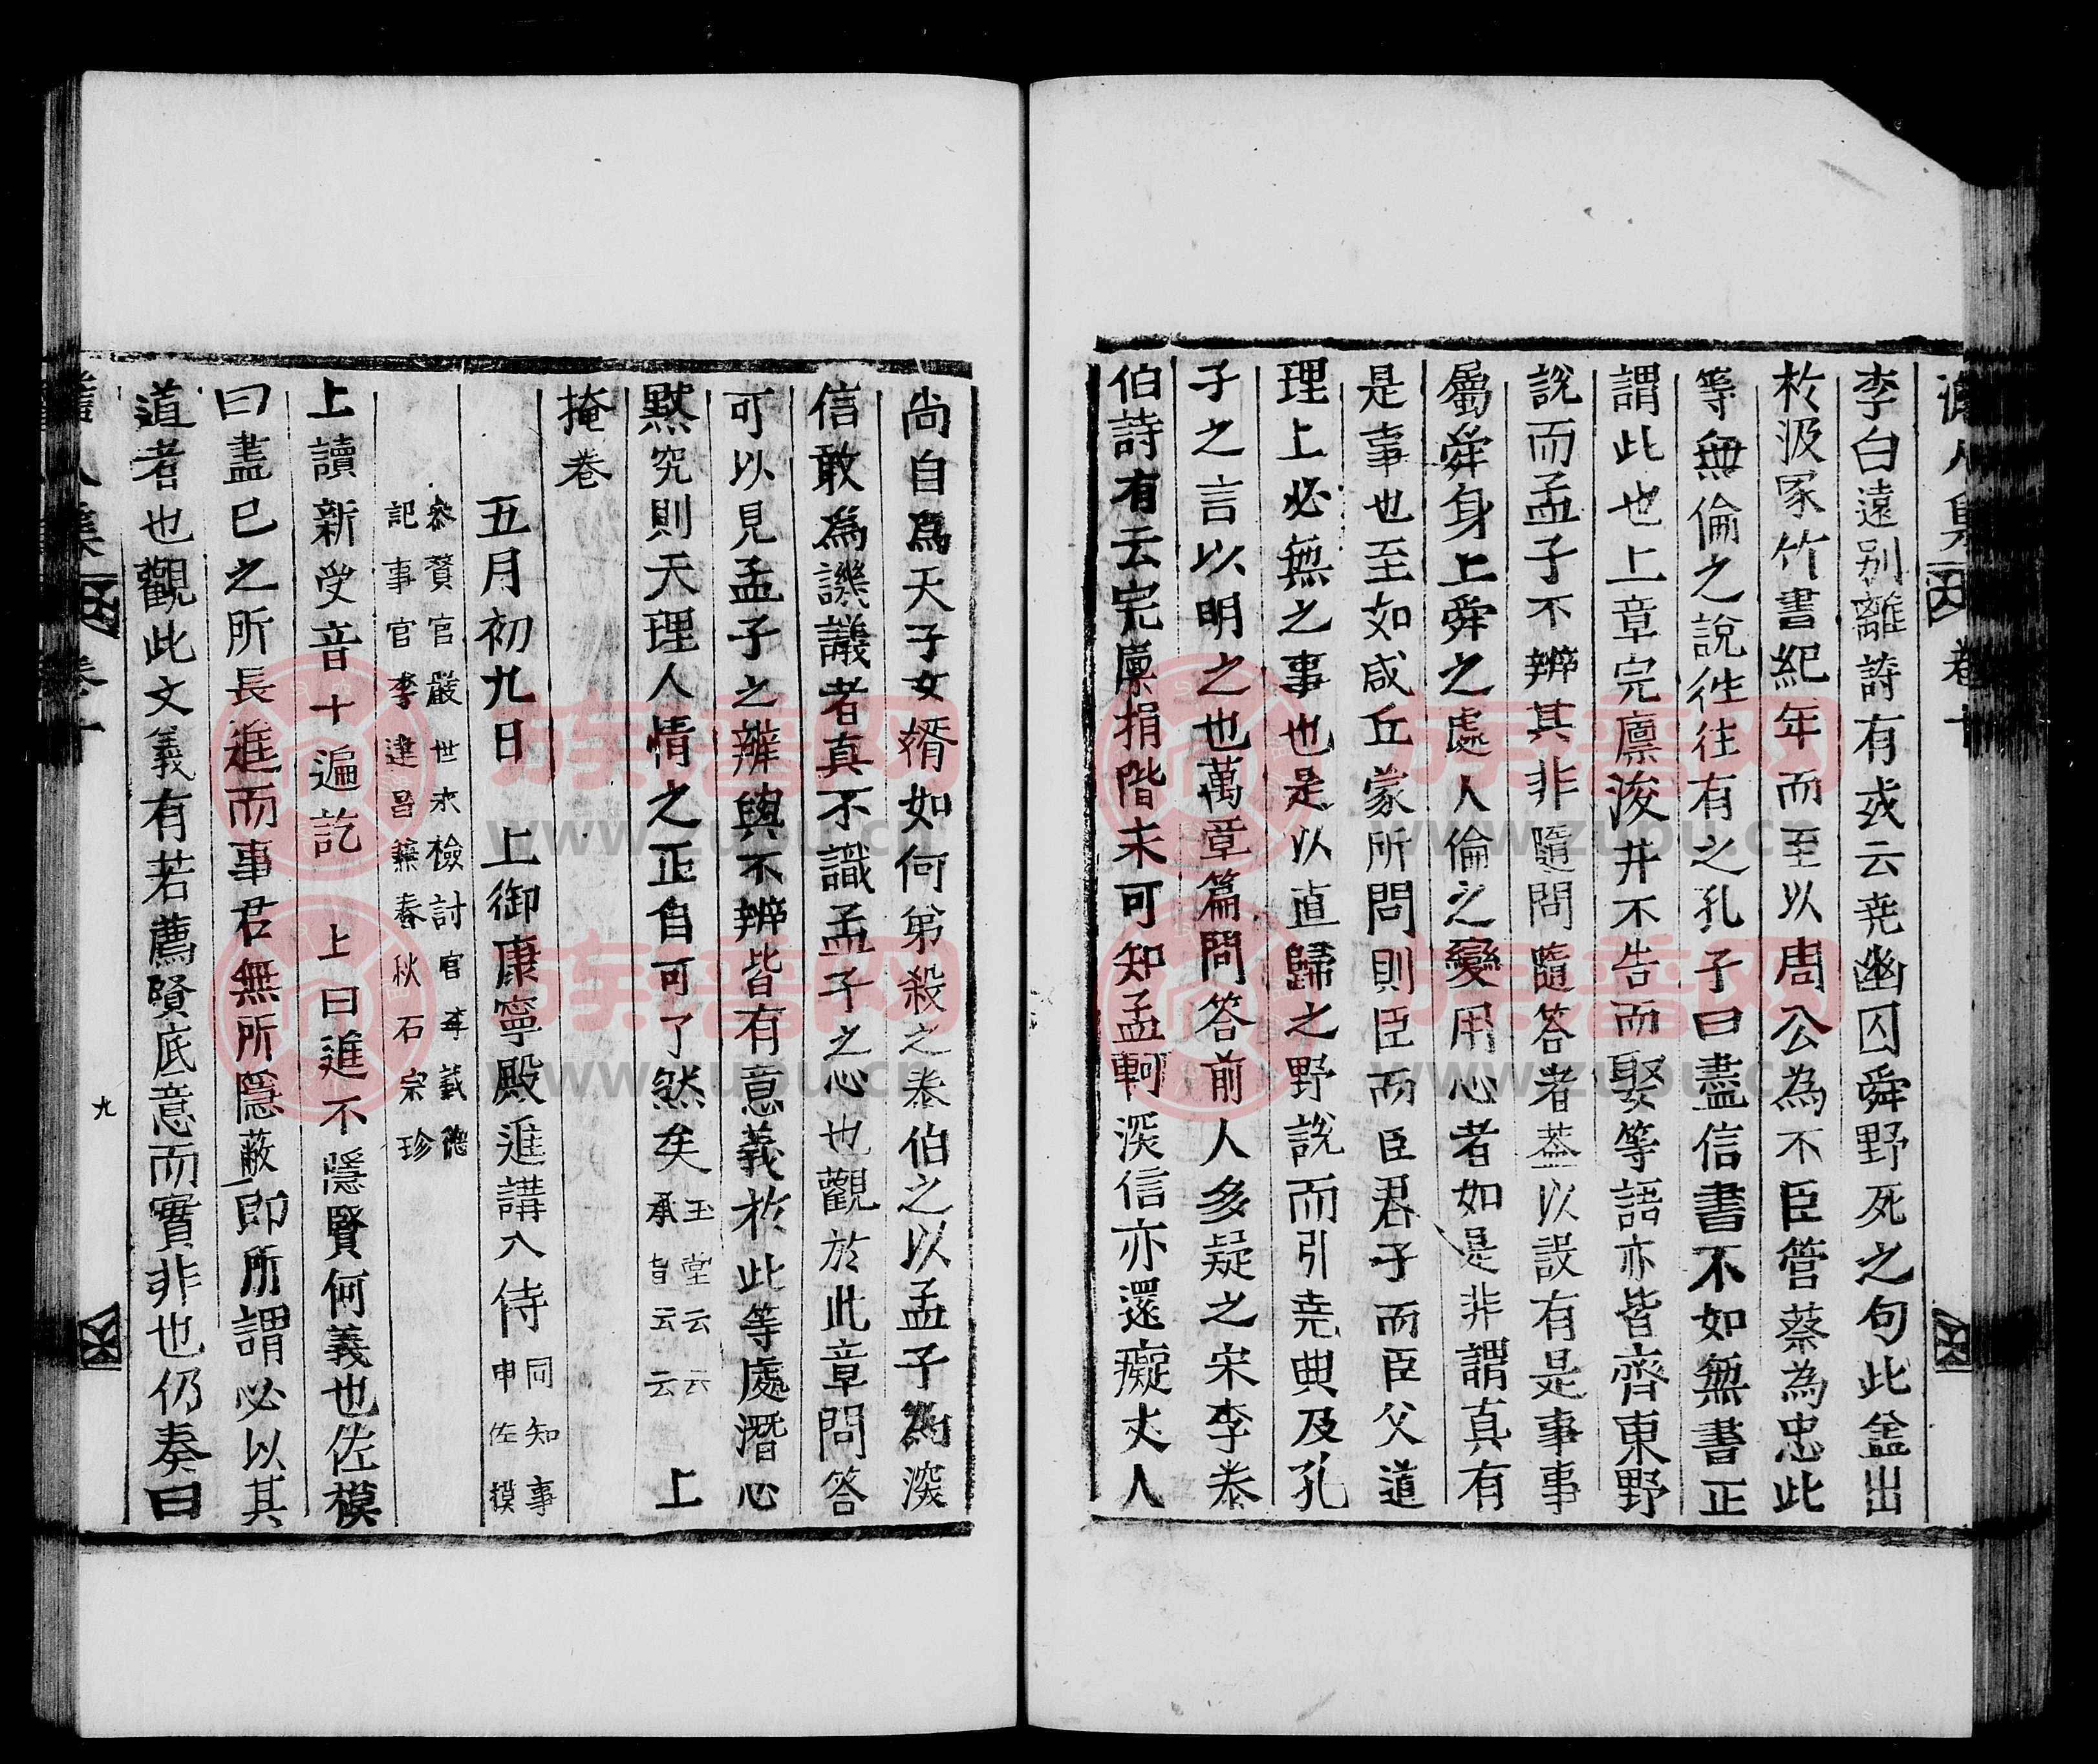 李白遠別離詩有或云堯幽囚舜野死之句此盖出
於汲冢竹書紀年而至以周公為不臣管蔡為忠此
等無倫之說徃徃有之孔子曰盡信書不如無書正
謂此也上章完廪浚井不告而娶等語亦皆齊東野
說而孟子不辨其非隨問隨答者盖以設有是事事
屬舜身上舜之處人倫之變用心者如是非謂真有
是事也至如咸丘蒙所問則臣而臣君子而臣父道
理上必無之事也是以直歸之野說而引堯典及孔
子之言以明之也萬章篇問答前人多疑之宋李泰
伯詩有云完廪捐階未可知孟軻深信亦還癡丈人
尚自為天子女婿如何弟殺之泰伯之以孟子為深
信敢為譏議者真不識孟子之心也觀於此章問答
可以見孟子之辨與不辨皆有意義於此等處潛心
黙究則天理人情之正自可了然矣玉堂云云承旨云云 上
掩卷
五月初九日 上御康寧殿進講入侍同知事申佐模
叅贊官嚴世永檢討官李義德
記事官李建昌兼春秋石宗珍
上讀新受音十遍訖 上曰進不隱賢何義也佐模
曰盡已之所長進而事君無所隱蔽即所謂必以其
道者也觀此文義有若薦賢底意而實非也仍奏曰
卷十
九
族譜网
www.zupu.cn
族譜网
www.zupu.cn
族譜网
www.zupu.cn
族譜网
www.zupu.cn